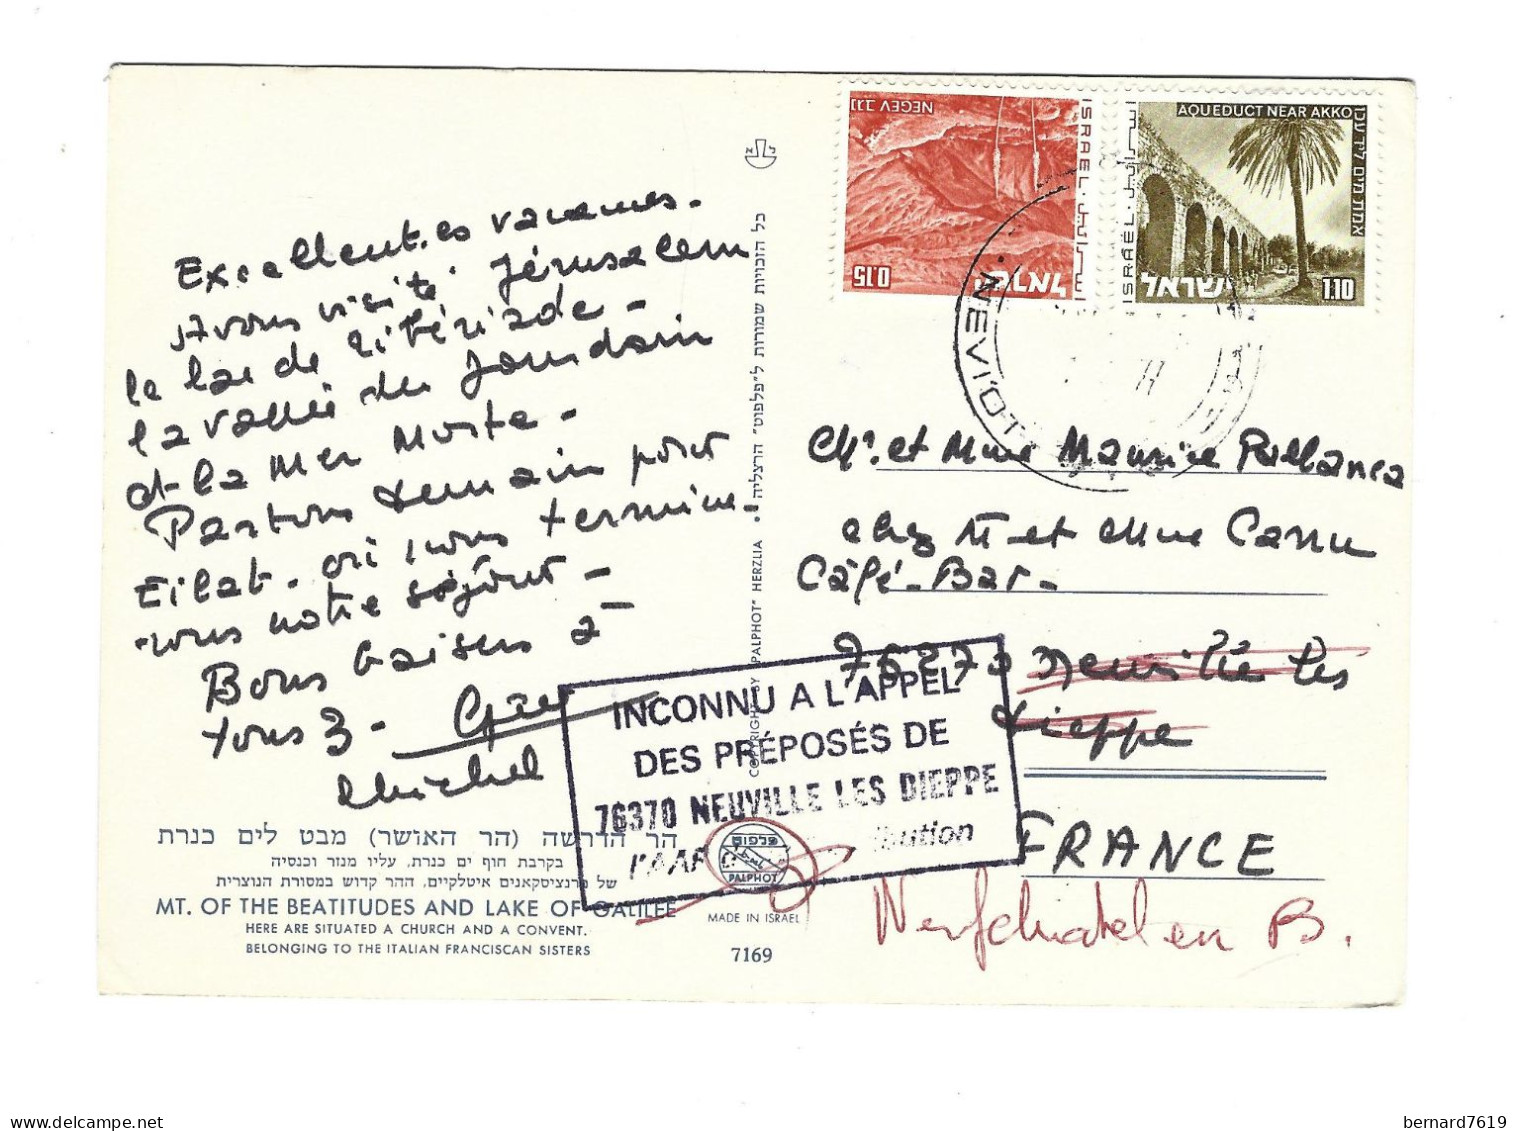 Excellentes vacances.
Avons visité Jérusalem
le lac de Tibériade -
la vallée du Jourdain
et la Mer Morte -
Partons demain pour
Eilat - où nous termine-
rons notre séjour -
Bons baisers à
tous 3 -
Michel
הר הדרשה (הר האושר) מבט לים כנרת
בקרבת חוף ים כנרת, עליו מנזר וכנסיה
של פרנציסקאנים איטלקיים, ההר קדוש במסורת הנוצרית
MT. OF THE BEATITUDES AND LAKE OF GALILEE
HERE ARE SITUATED A CHURCH AND A CONVENT.
BELONGING TO THE ITALIAN FRANCISCAN SISTERS
כל הזכויות שמורות ל"פלפוט" הרצליה • COPYRIGHT BY "PALPHOT" HERZLIA
פלפוט
PALPHOT
MADE IN ISRAEL
7169
NEGEV נגב
ISRAEL
اسرائيل
ישראל
0.15
AQUEDUCT NEAR AKKO
אמת מים ליד עכו
ISRAËL
اسرائيل
ישראל
1.10
NEVI'OT
Mr. et Mme Maurice
chez M et Mme Canu
Café-Bar-
76270 Neuville les
Dieppe
FRANCE
Neufchatel en B.
INCONNU A L'APPEL
DES PRÉPOSÉS DE
76370 NEUVILLE LES DIEPPE